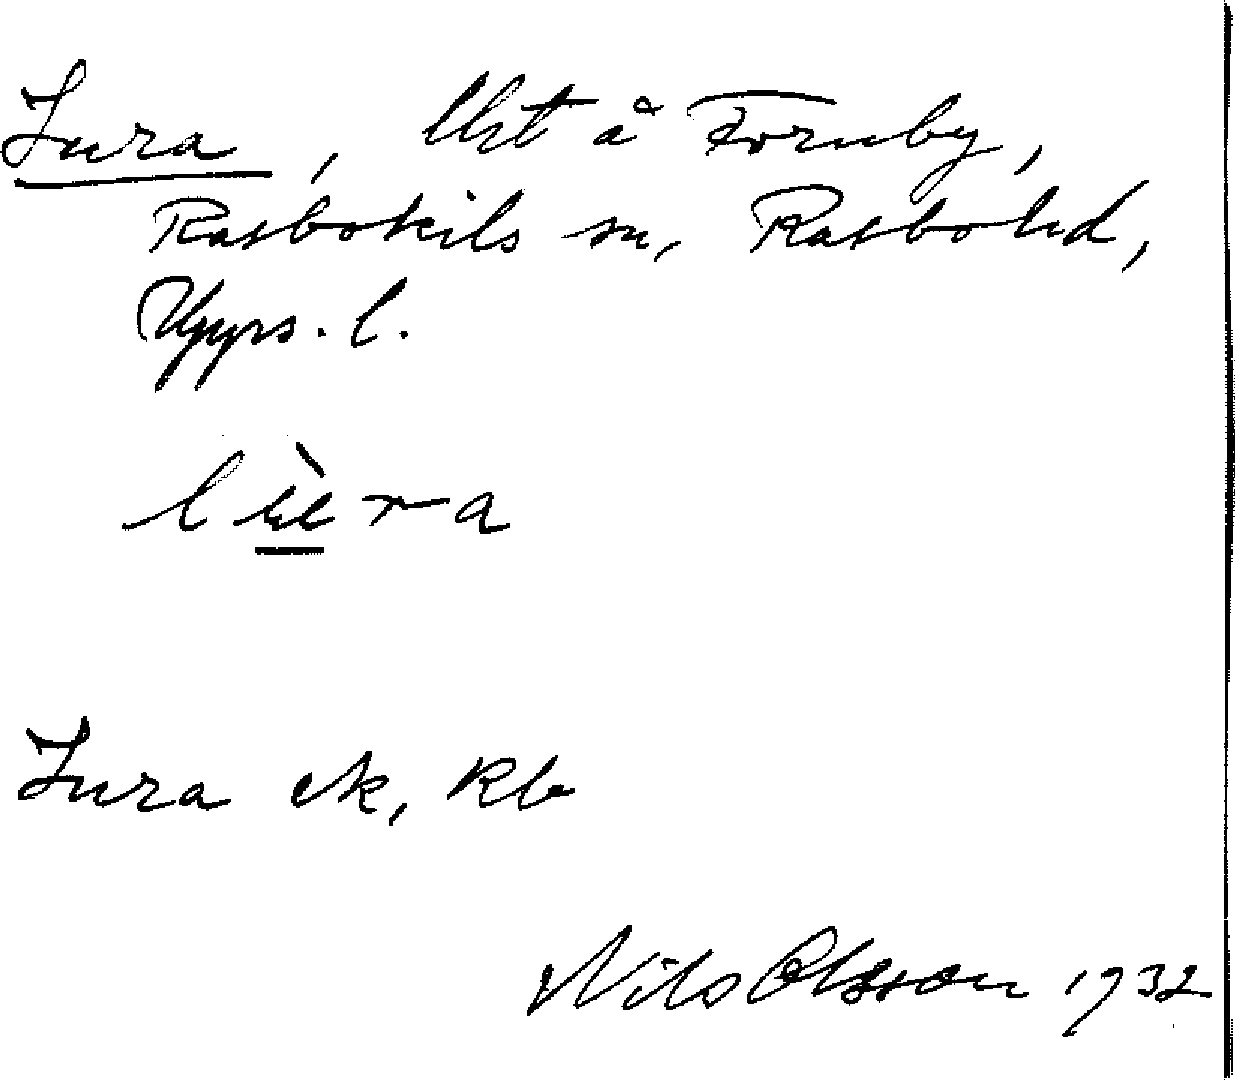 Lura, lht å Fornby,
Rasbokils sn, Rasbo hd,
Upps. l.
lùra
Lura ek, Kb
Nils Olsson 1932